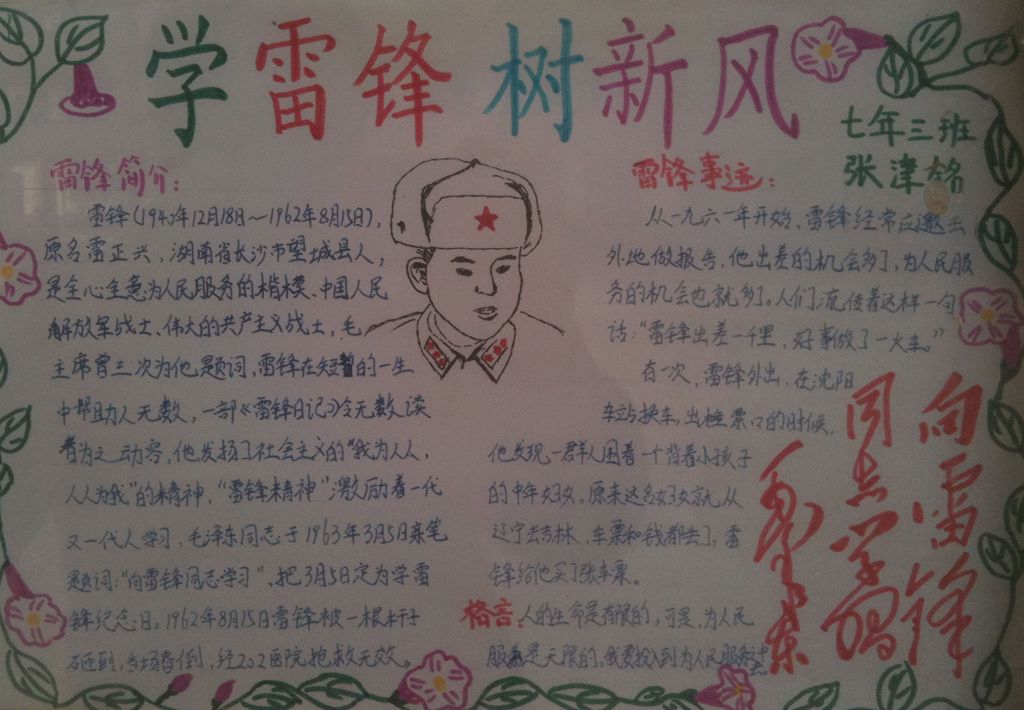 学雷锋 树新风
七年三班
张津铭
雷锋简介：
雷锋（1940年12月18日～1962年8月15日），
原名雷正兴，湖南省长沙市望城县人，
是全心全意为人民服务的楷模、中国人民
解放军战士、伟大的共产主义战士，毛
主席曾三次为他题词，雷锋在短暂的一生
中帮助人无数，一部《雷锋日记》令无数读
者为之动容，他发扬了社会主义的“我为人人，
人人为我”的精神，“雷锋精神”激励着一代
又一代人学习，毛泽东同志于1963年3月5日亲笔
题词：“向雷锋同志学习”，把3月5日定为学雷
锋纪念日。1962年8月15日雷锋被一根木干子
砸到，当场昏倒，经202医院抢救无效。
雷锋事迹：
从一九六一年开始，雷锋经常应邀去
外地做报告，他出差的机会多了，为人民服
务的机会也就多了。人们流传着这样一句
话：“雷锋出差一千里，好事做了一火车。”
有一次，雷锋外出，在沈阳
车站换车，出检票口的时候，
他发现一群人围着一个背着小孩子
的中年妇女。原来这名妇女就从
辽宁去吉林，车票和钱都丢了，雷
锋给他买了张车票。
格言：人的生命是有限的，可是，为人民
服务是无限的，我要投入到为人民服务中去。
向雷锋
同志学习
毛泽东